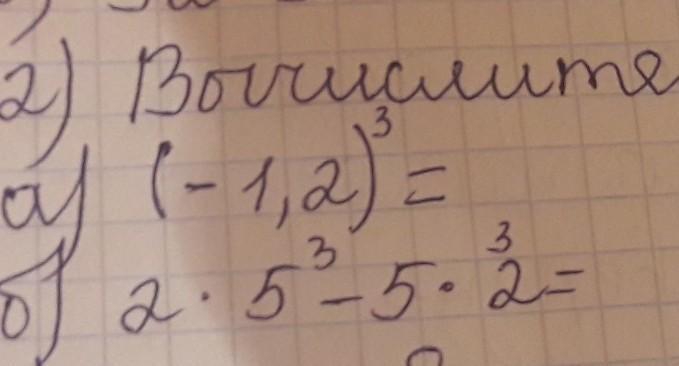 2) Вычислите
а) (-1,2)³=
б) 2·5³-5·2³=